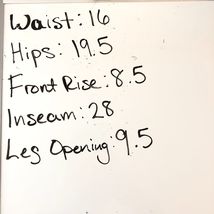 Waist: 16
Hips: 19.5
Front Rise: 8.5
Inseam: 28
Leg Opening: 9.5